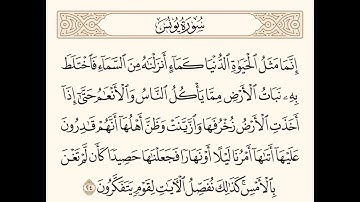 سُورَةُ يُونُسَ
إِنَّمَا مَثَلُ الْحَيَوٰةِ الدُّنْيَا كَمَآءٍ أَنزَلْنَٰهُ مِنَ السَّمَآءِ فَاخْتَلَطَ
بِهِۦ نَبَاتُ الْأَرْضِ مِمَّا يَأْكُلُ النَّاسُ وَالْأَنْعَٰمُ حَتَّىٰٓ إِذَآ
أَخَذَتِ الْأَرْضُ زُخْرُفَهَا وَازَّيَّنَتْ وَظَنَّ أَهْلُهَآ أَنَّهُمْ قَٰدِرُونَ
عَلَيْهَآ أَتَىٰهَآ أَمْرُنَا لَيْلًا أَوْ نَهَارًا فَجَعَلْنَٰهَا حَصِيدًا كَأَن لَّمْ تَغْنَ
بِالْأَمْسِ ۚ كَذَٰلِكَ نُفَصِّلُ الْءَايَٰتِ لِقَوْمٍ يَتَفَكَّرُونَ ٢٤